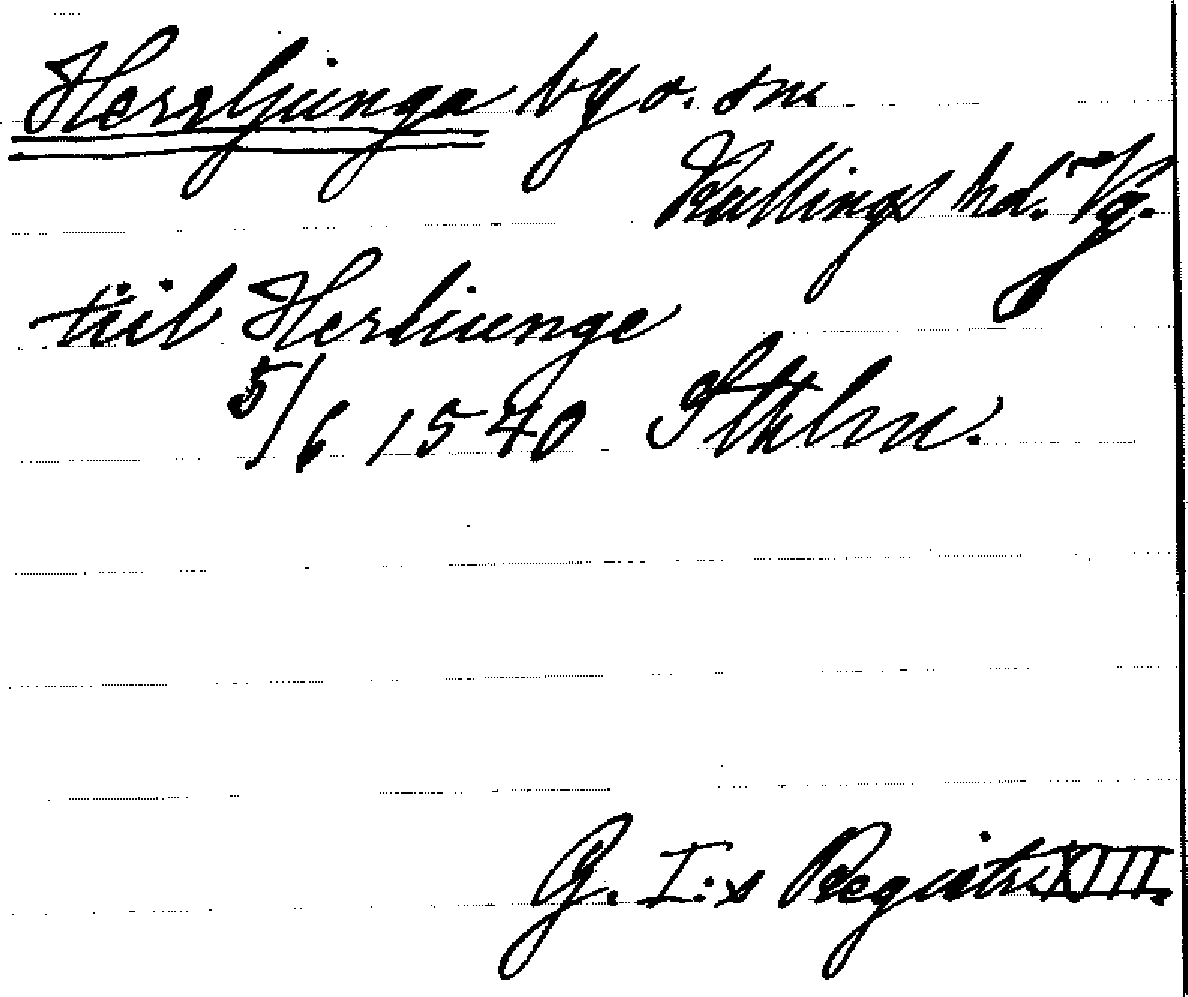 Herrljunga by o. sn.
Kullings hd. Vg.
tiil Herliunge
5/6 1540 Sthlm.
G. I:s Registr. XIII.